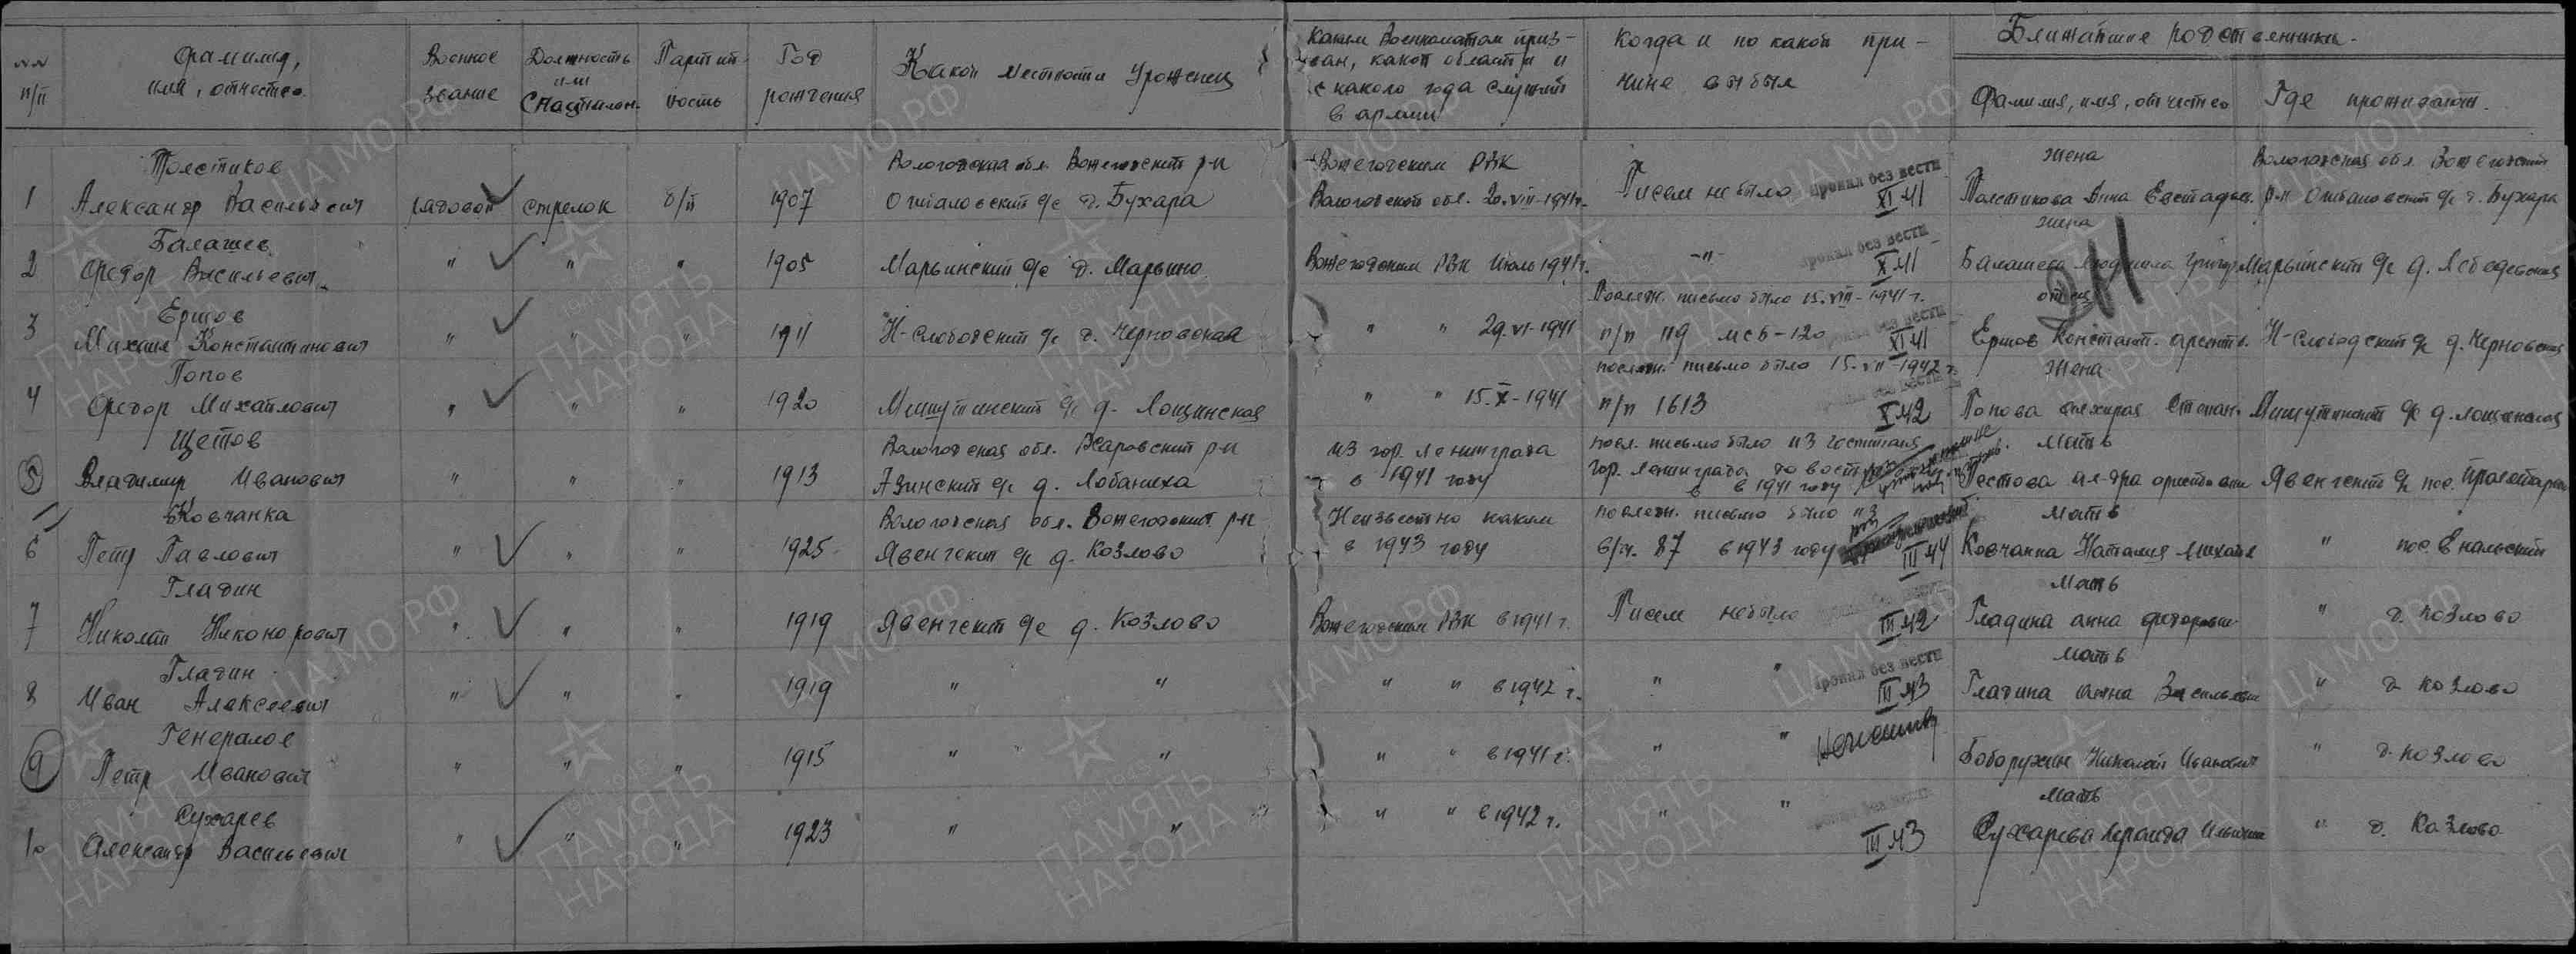 №№ п/п
Фамилия, имя, отчество
Военное звание
Должность или специальн.
Партийность
Год рождения
Какой местности уроженец
Каким Военкоматом призван, какой области и с какого года служит в армии
Когда и по какой причине выбыл
Ближайшие родственники
Фамилия, имя, отчество
Где проживают
1 Толстиков Александр Васильевич
рядовой стрелок б/п 1907
Вологодская обл. Вожегодский р-н
с/с д. Бухара
Вожегодским РВК
Вологодской обл. 20.VIII-1941г.
Писем не было
пропал без вести XI 41
жена
Толстикова Анна
Вологодская обл. Вожегодский
р-н с/с д. Бухара
2 Балашев Федор Васильевич
" " " 1905
Марьинский с/с д. Марьино
Вожегодским РВК Июль 1941г.
-"-
пропал без вести X 41
жена
Балашева Людмила Григор.
Марьинский с/с д.
3 Ершов Михаил Константинович
" " " 1911
Н-Слободский с/с д. Черновская
" " 29.VI-1941
Послед. письмо было 15.VIII-1941 г.
п/п 119 мсб-120
XI 41
отец
Ершов Констант.
Н-Слободский с/с д. Черновская
4 Попов Федор Михайлович
" " " 1920
Мишутинский с/с д. Лощинская
" " 15.X-1941
послед. письмо было 15.VII-1942 г.
п/п 1613
X 42
Жена
Попова Степан.
Мишутинский с/с д. Лощинская
5 Щетов Владимир Иванович
" " " 1913
Вологодская обл. Харовский р-н
Азинский с/с д. Лобаниха
из гор. Ленинграда
в 1941 году
посл. письмо было из госпиталя
гор. Ленинграда
в 1941 году
Мать
Явенгский с/с пос.
6 Ковчанка Петр Павлович
" " " 1925
Вологодская обл. Вожегодский р-н
Явенгский с/с д. Козлово
Неизвестно каким
в 1943 году
послед. письмо было из
в/ч. 87 в 1943 году
III 44
Мать
Ковчанка Наталия Михайл
" пос.
7 Гладин Николай Никонорович
" " " 1919
Явенгский с/с д. Козлово
Вожегодским РВК в 1941 г.
Писем не было
III 42
Мать
Гладина Анна Федоровн
" д. Козлово
8 Гладин Иван Алексеевич
" " " 1919
" "
" " в 1942 г.
" "
пропал без вести III 43
Мать
Гладина Анна Васильевн
" д. Козлово
9 Генералов Петр Иванович
" " " 1915
" "
" " в 1941 г.
" "
Николай Иванович
" д. Козлово
10 Сухарев Александр Васильевич
" " " 1923
" "
" " в 1942 г.
" "
III 43
Мать
Сухарева
" д. Козлово
ПАМЯТЬ НАРОДА
1941-1945
ЦАМО РФ